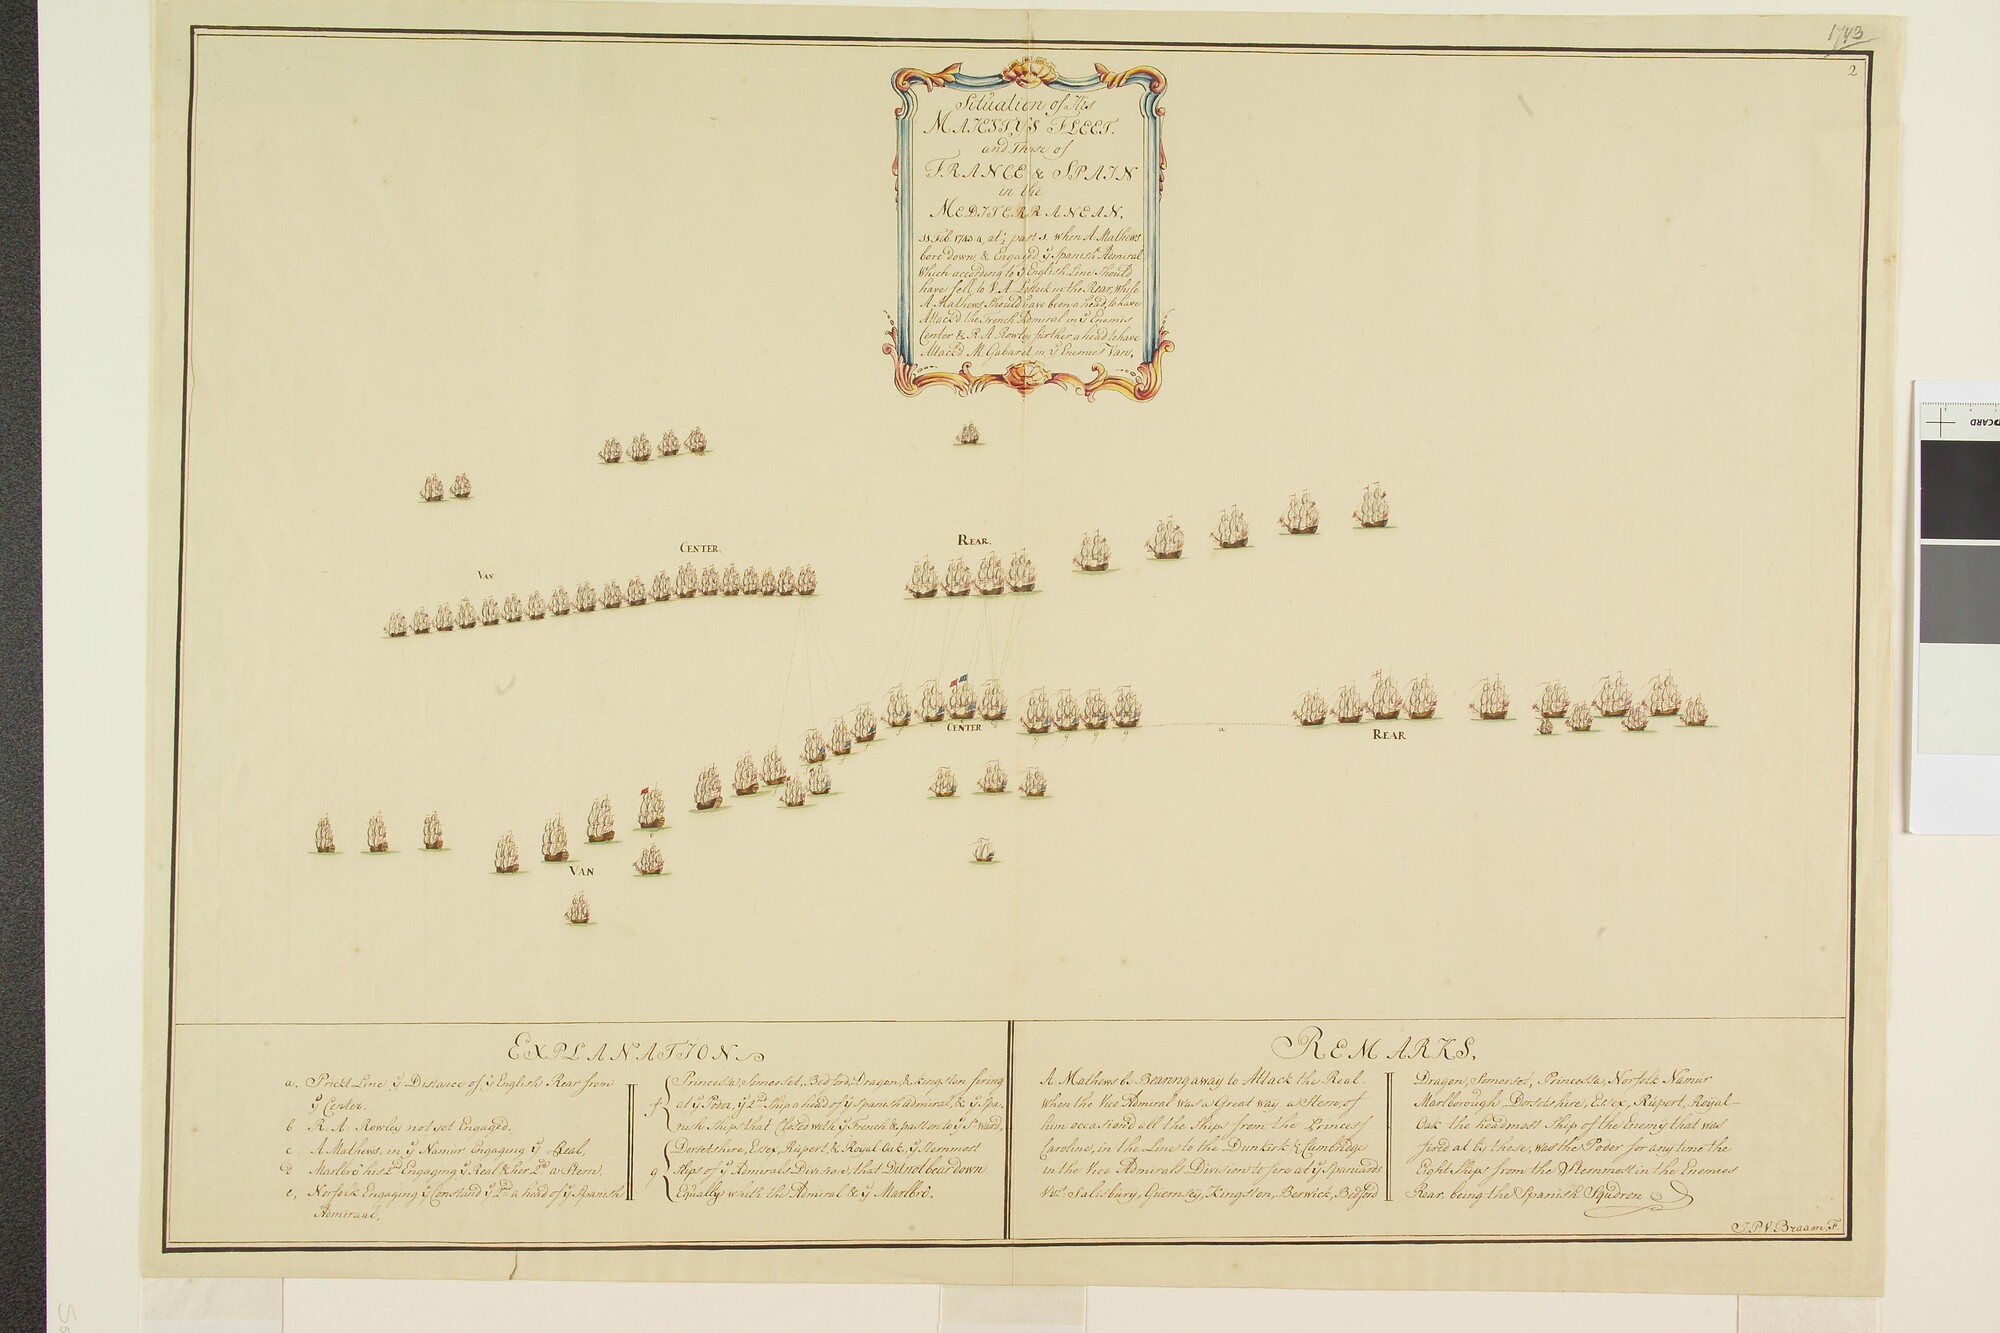 1743
2
Situation of His
MAJESTYS FLEET.
and Those of
FRANCE & SPAIN
in the
MEDITERRANEAN,
11 Feb. 1743/4, at ½ past 1. when A. Mathews
bore down, & Engaged ÿ Spanish Admiral
Which according to ÿ English Line Should
have fell to V. A. Lestock in the Rear, While
A. Mathews Should have been a head, to have
Attack'd the French Admiral in ÿ Enemies
Center & R. A. Rowley further a head to have
Attack'd M. Gabaret in ÿ Enemies Van.
REAR.
CENTER.
VAN
CENTER
a
REAR
VAN
EXPLANATION
a. Prickt Line ÿ Distance of ÿ English Rear from
ÿ Center.
b R. A. Rowley not yet Engaged.
c. A. Mathews, in ÿ Namur Engaging ÿ Real,
d Marlbro' his 2d Engaging ÿ Real & her 2d a Stern,
e, Norfolk Engaging ÿ Constand ÿ 2d a head of ÿ Spanish
Admiraal,
f Princessa, Somerset, Bedford, Dragon, & Kingston firing
at ÿ Poder, ÿ 2d Ship a head of ÿ Spanish admiral, & ÿ Spa-
nish Ships that Closed with ÿ French & past on to ÿ S. ward,
g Dorsetshire, Essex, Rupert, & Royal Oak, ÿ Sternmost
Ships of ÿ Admirals Division, that Did not bear down
Equally whith the Admiral & ÿ Marlbro'.
REMARKS,
A. Mathews bs. Bearing away to Attack the Real
when the Vice Admiral was a Great way a Stern, of
him occasiond all the Ships from the Princess
Caroline, in the Line to the Dunkirk & Cambridge
in the Vice Admirals Division to fire at ÿ Spaniards
Vizt. Salisbury, Guernsey, Kingston, Berwick, Bedford
Dragon, Somerset, Princessa, Norfolk Namur
Marlborough, Dorsetshire, Essex, Rupert, Royal-
Oak the headmost Ship of the Enemy that was
fired at by these, was the Poder for any time the
Eight Ships from the Sternmost in the Enemies
Rear, being the Spanish Squdron
J. P. V. Braam F.